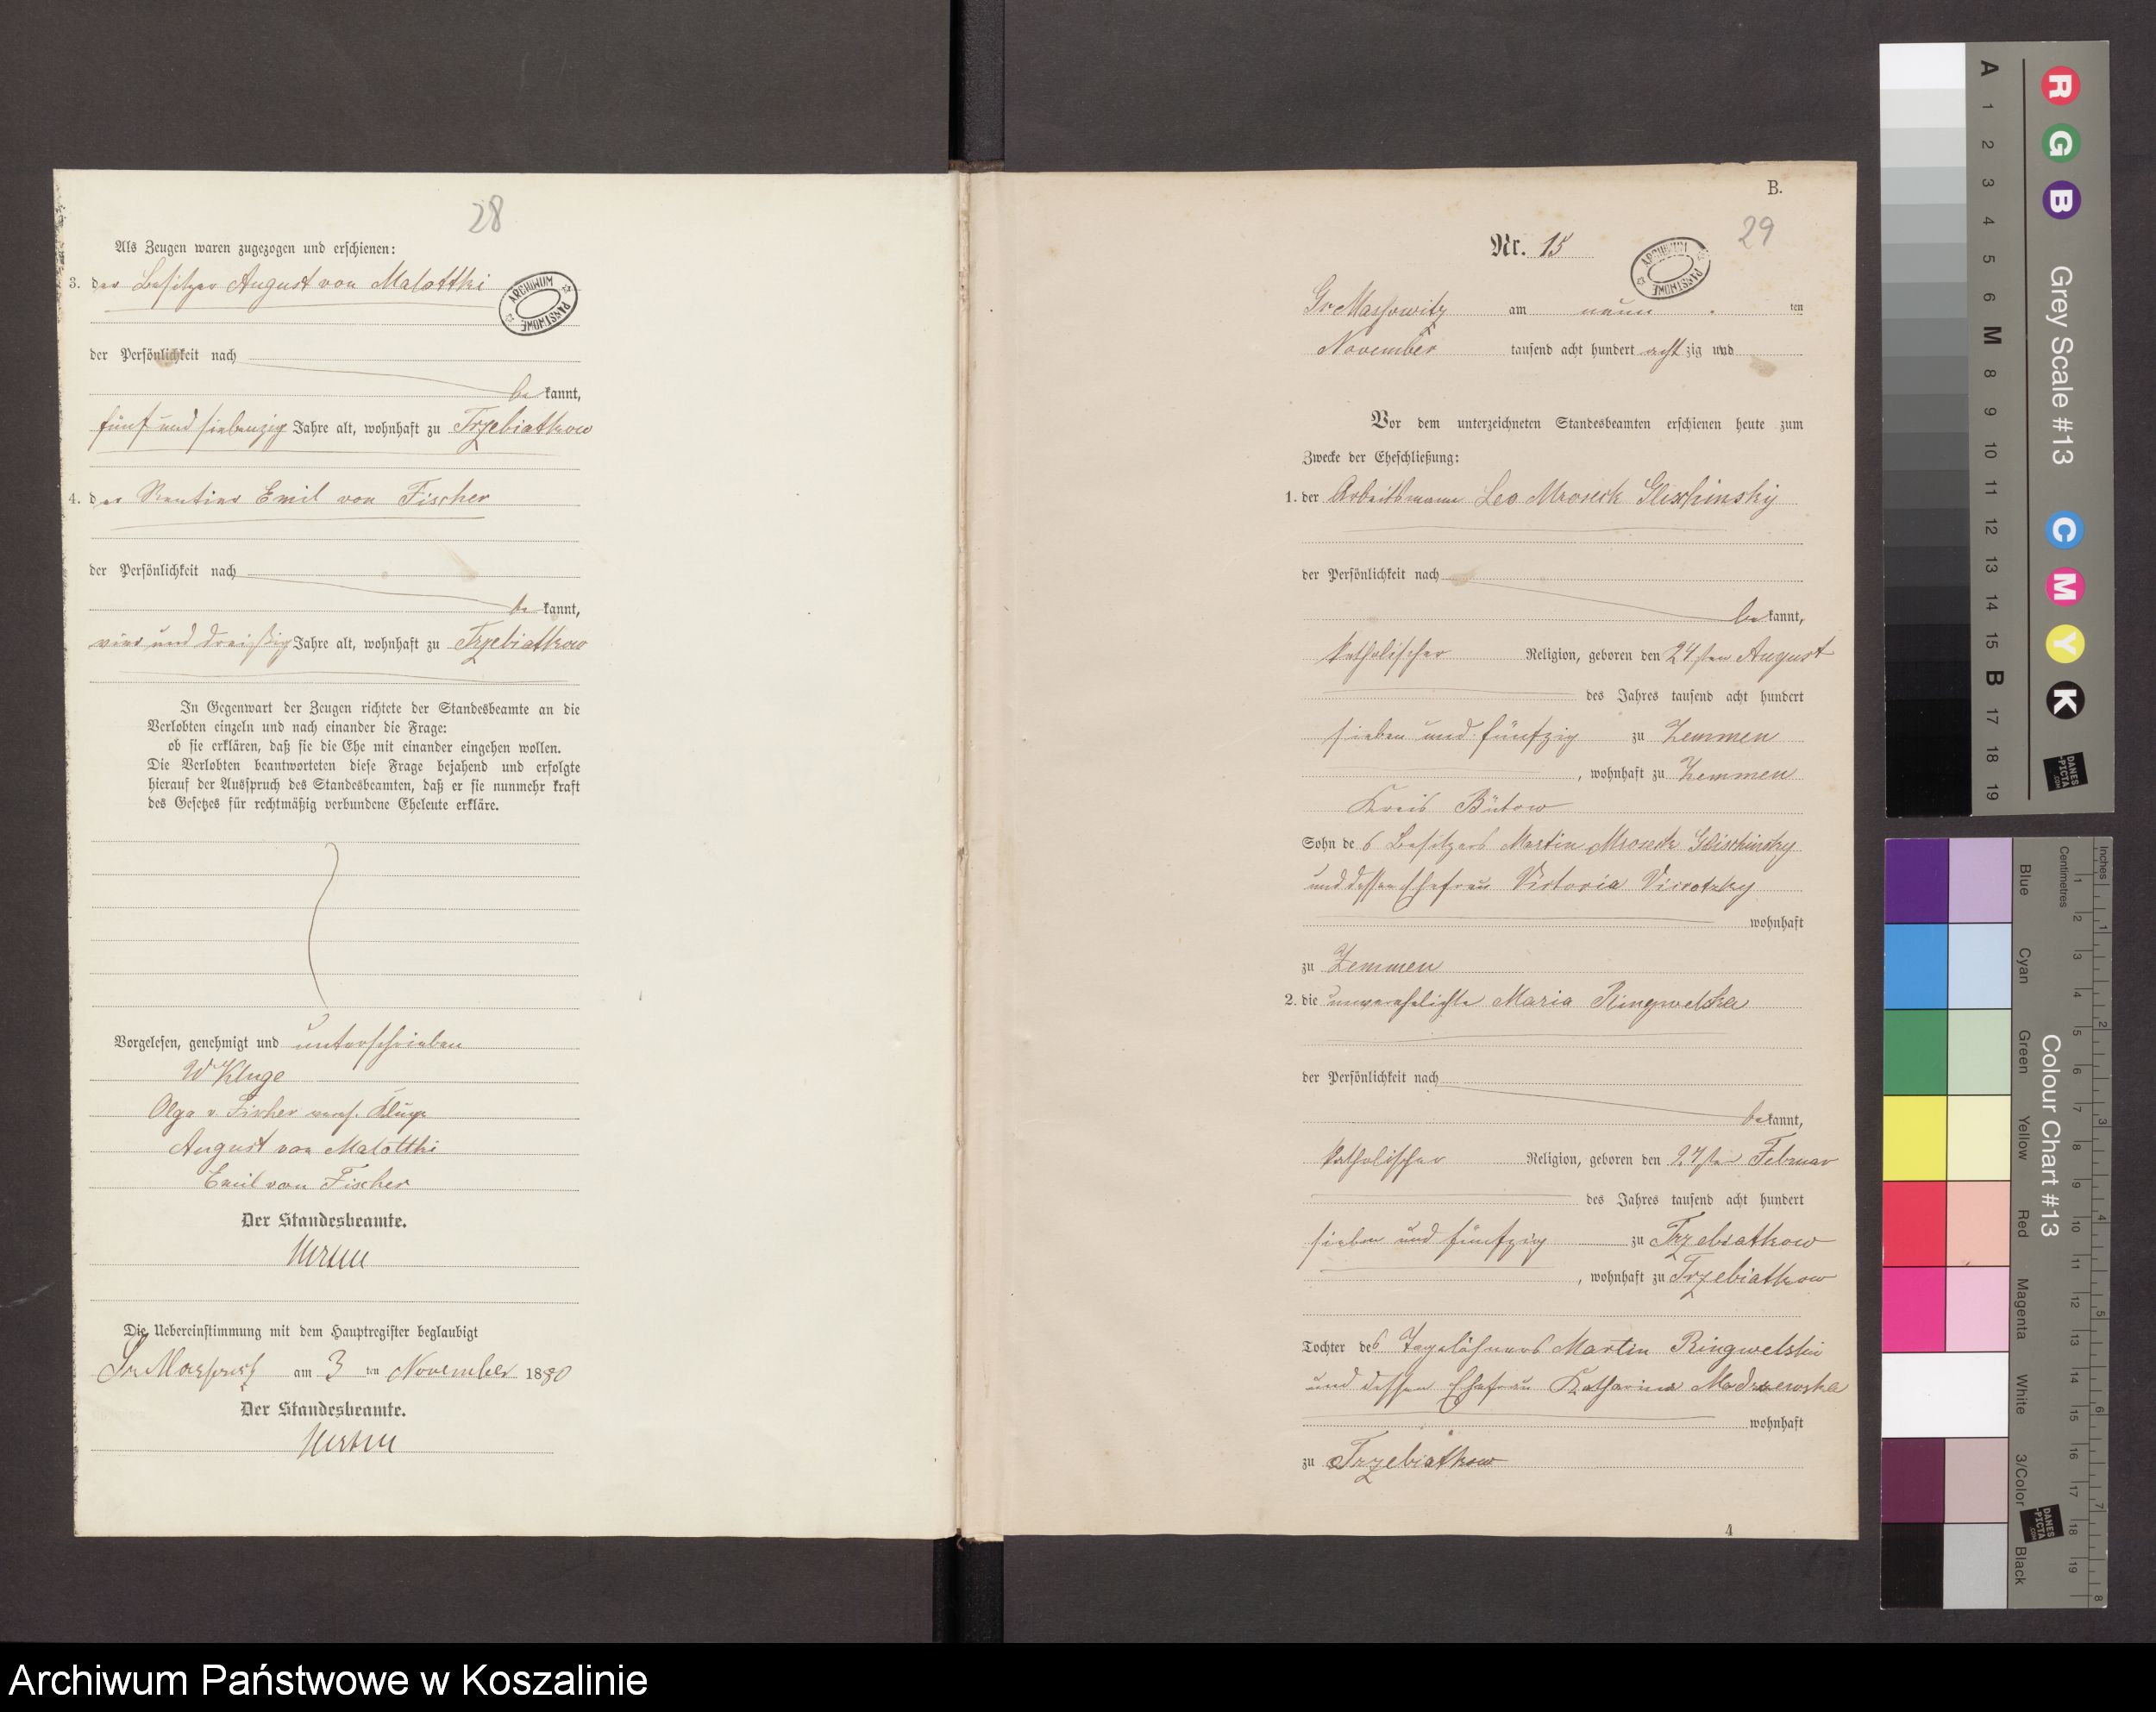 28
Als Zeugen waren zugezogen und erschienen:
3. der Besitzer August von Malottki
ARCHIWUM PAŃSTWOWE
der Persönlichkeit nach
be kannt,
fünf und siebenzig Jahre alt, wohnhaft zu Trzebiatkow
4. der Rentier Emil von Fischer
der Persönlichkeit nach
be kannt,
vier und dreißig Jahre alt, wohnhaft zu Trzebiatkow
In Gegenwart der Zeugen richtete der Standesbeamte an die
Verlobten einzeln und nach einander die Frage:
ob sie erklären, daß sie die Ehe mit einander eingehen wollen.
Die Verlobten beantworteten diese Frage bejahend und erfolgte
hierauf der Ausspruch des Standesbeamten, daß er sie nunmehr kraft
des Gesetzes für rechtmäßig verbundene Eheleute erkläre.
Vorgelesen, genehmigt und unterschrieben
W Kluge
Olga v. Fischer verh. Kluge
August von Malottki
Emil von Fischer
Der Standesbeamte.
Die Uebereinstimmung mit dem Hauptregister beglaubigt
Gr Massowitz am 3 ten November 1880
Der Standesbeamte.
B.
29
Nr. 15
ARCHIWUM PAŃSTWOWE
Gr Massowitz am neun ten
November tausend acht hundert acht zig und
Vor dem unterzeichneten Standesbeamten erschienen heute zum
Zwecke der Eheschließung:
1. der Arbeitsmann Leo Mroseck Glischinsky
der Persönlichkeit nach
be kannt,
katholischer Religion, geboren den 24sten August
des Jahres tausend acht hundert
sieben und fünfzig zu Zemmen
, wohnhaft zu Zemmen
Kreis Bütow
Sohn de s Besitzers Martin Mroseck Glischinsky
und dessen Ehefrau Viktoria
wohnhaft
zu Zemmen
2. die unverehelichte Maria Ringwelska
der Persönlichkeit nach
be kannt,
katholischer Religion, geboren den 27sten Februar
des Jahres tausend acht hundert
sieben und fünfzig zu Trzebiatkow
, wohnhaft zu Trzebiatkow
Tochter des Tagelöhners Martin Ringwelski
und dessen Ehefrau Katharina
wohnhaft
zu Trzebiatkow
4
A 1 2 3 4 5 6 M 8 9 10 11 12 13 14 15 B 17 18 19
R G B
Grey Scale #13
C M Y K
DANES-PICTA.COM
Blue Cyan Green Yellow Red Magenta White 3/Color Black
Colour Chart #13
Centimetres 1 2 3 4 5 6 7 8 9 10 11 12 13 14 15 16 17 18 19
Inches 1 2 3 4 5 6 7 8
DANES-PICTA.COM
Archiwum Państwowe w Koszalinie